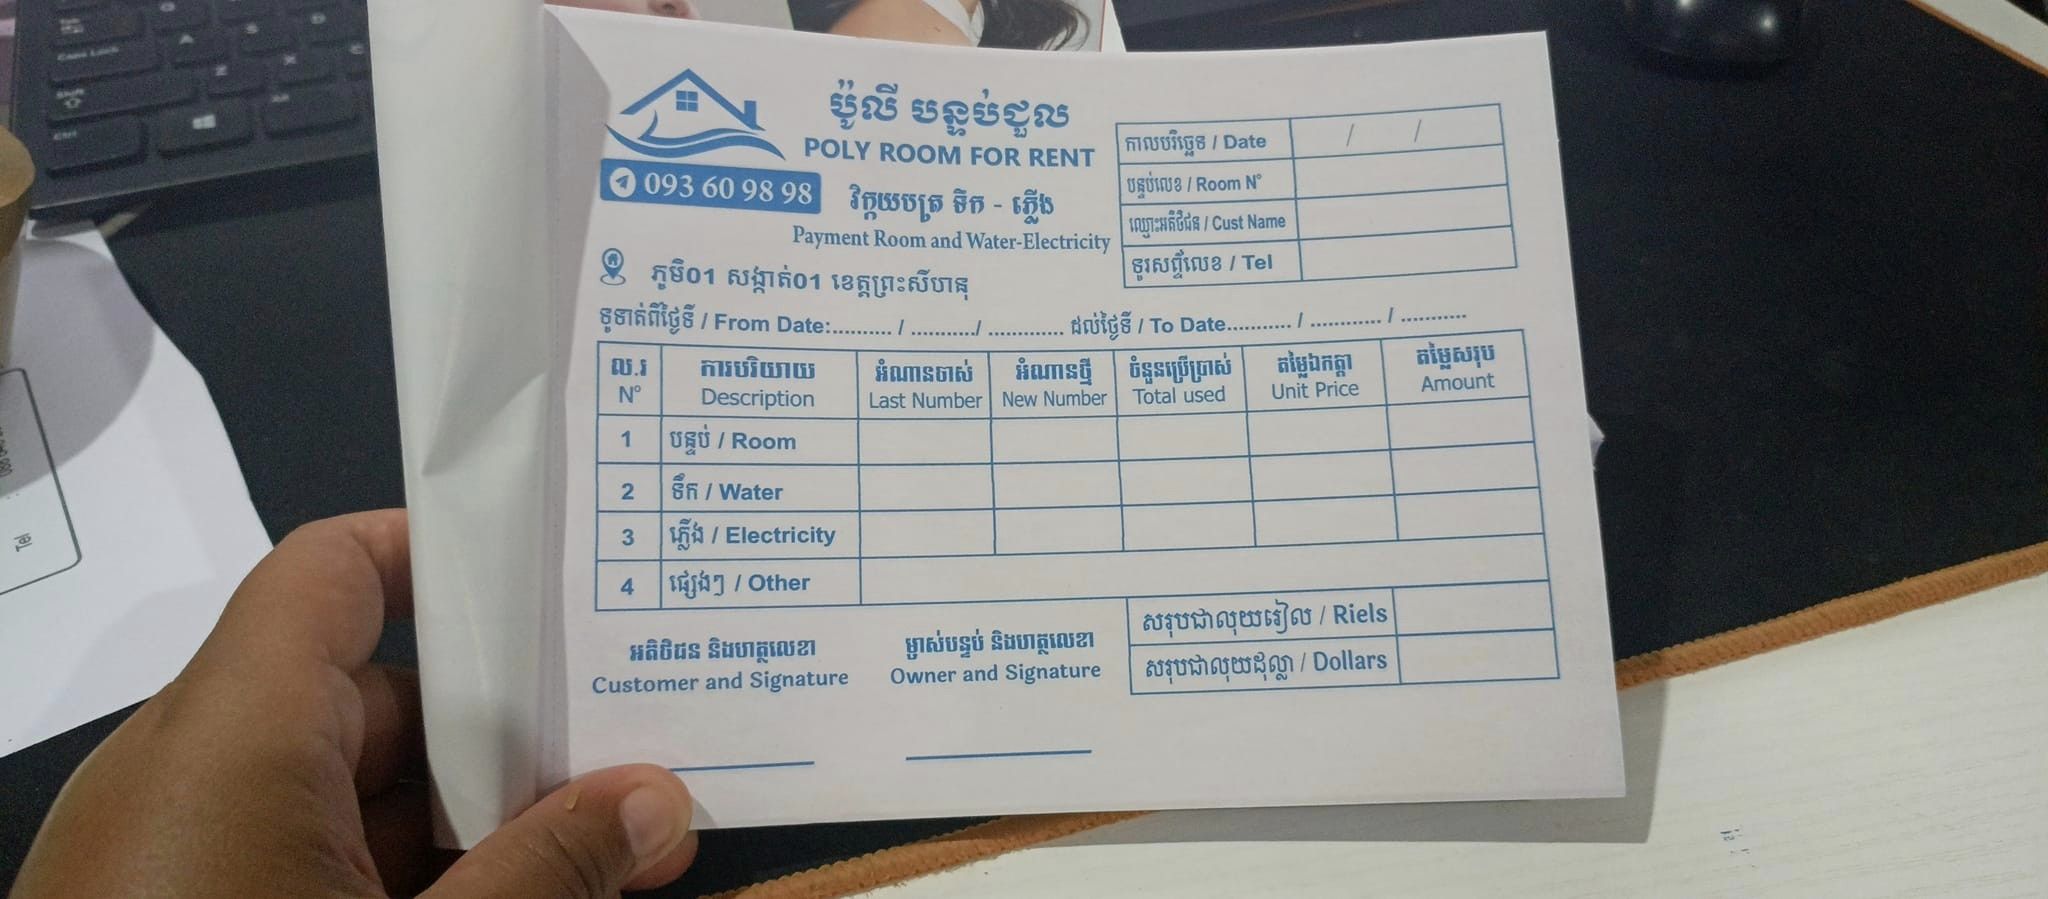 ប៉ូលី បន្ទប់ជួល
POLY ROOM FOR RENT
093 60 98 98
វិក្កយបត្រ ទឹក - ភ្លើង
Payment Room and Water-Electricity
ភូមិ01 សង្កាត់01 ខេត្តព្រះសីហនុ
កាលបរិច្ឆេទ / Date / /
បន្ទប់លេខ / Room N°
ឈ្មោះអតិថិជន / Cust Name
ទូរសព្ទ័លេខ / Tel
ទូទាត់ពីថ្ងៃទី / From Date:.......... / .........../ ............. ដល់ថ្ងៃទី / To Date........... / ............ / ...........
ល.រ ការបរិយាយ អំណានចាស់ អំណានថ្មី ចំនួនប្រើប្រាស់ តម្លៃឯកត្តា តម្លៃសរុប
N° Description Last Number New Number Total used Unit Price Amount
1 បន្ទប់ / Room
2 ទឹក / Water
3 ភ្លើង / Electricity
4 ផ្សេងៗ / Other
សរុបជាលុយរៀល / Riels
សរុបជាលុយដុល្លា / Dollars
អតិថិជន និងហត្ថលេខា
Customer and Signature
ម្ចាស់បន្ទប់ និងហត្ថលេខា
Owner and Signature
Caps Lock
Shift
Ctrl
A
S
Z
X
Tel